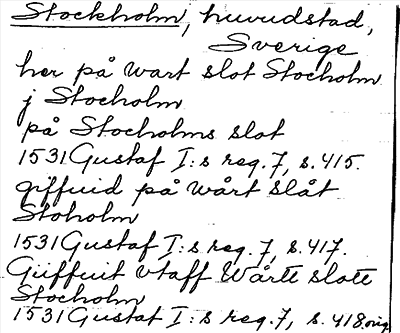 Stockholm, huvudstad,
Sverige
her på wart slot Stocholm
j Stocholm
på Stocholms slot
1531 Gustaf I:s reg. 7, s. 415.
giffuid på wårt slåt
Stoholm
1531 Gustaf I:s reg. 7, s. 417.
Giiffuit vtaff Wårtt slott
Stocholm
1531 Gustaf I:s reg. 7, s. 418 orig